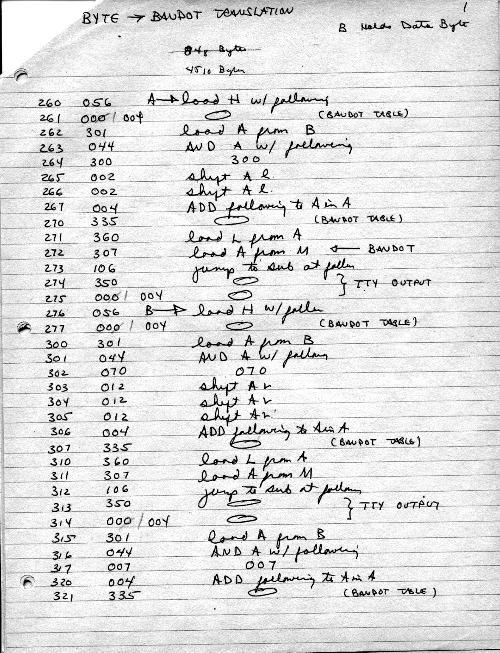 1
BYTE → BAUDOT TRANSLATION
B Holds Data Byte
84₈ Bytes
45₁₀ Bytes
260 056 A→ load H w/ following
261 000/004 (BAUDOT TABLE)
262 301 load A from B
263 044 AND A w/ following
264 300 300
265 002 shift A l.
266 002 shift A l.
267 004 ADD following to A in A
270 335 (BAUDOT TABLE)
271 360 load L from A
272 307 load A from M ← BAUDOT
273 106 jump to sub at follow
274 350 } TTY OUTPUT
275 000/004
276 056 B→ load H w/ follow
277 000/004 (BAUDOT TABLE)
300 301 load A from B
301 044 AND A w/ following
302 070 070
303 012 shift A r
304 012 shift A r
305 012 shift A r.
306 004 ADD following to A in A
307 335 (BAUDOT TABLE)
310 360 load L from A
311 307 load A from M
312 106 jump to sub at following
313 350 } TTY OUTPUT
314 000/004
315 301 load A from B
316 044 AND A w/ following
317 007 007
320 004 ADD following to A in A
321 335 (BAUDOT TABLE)